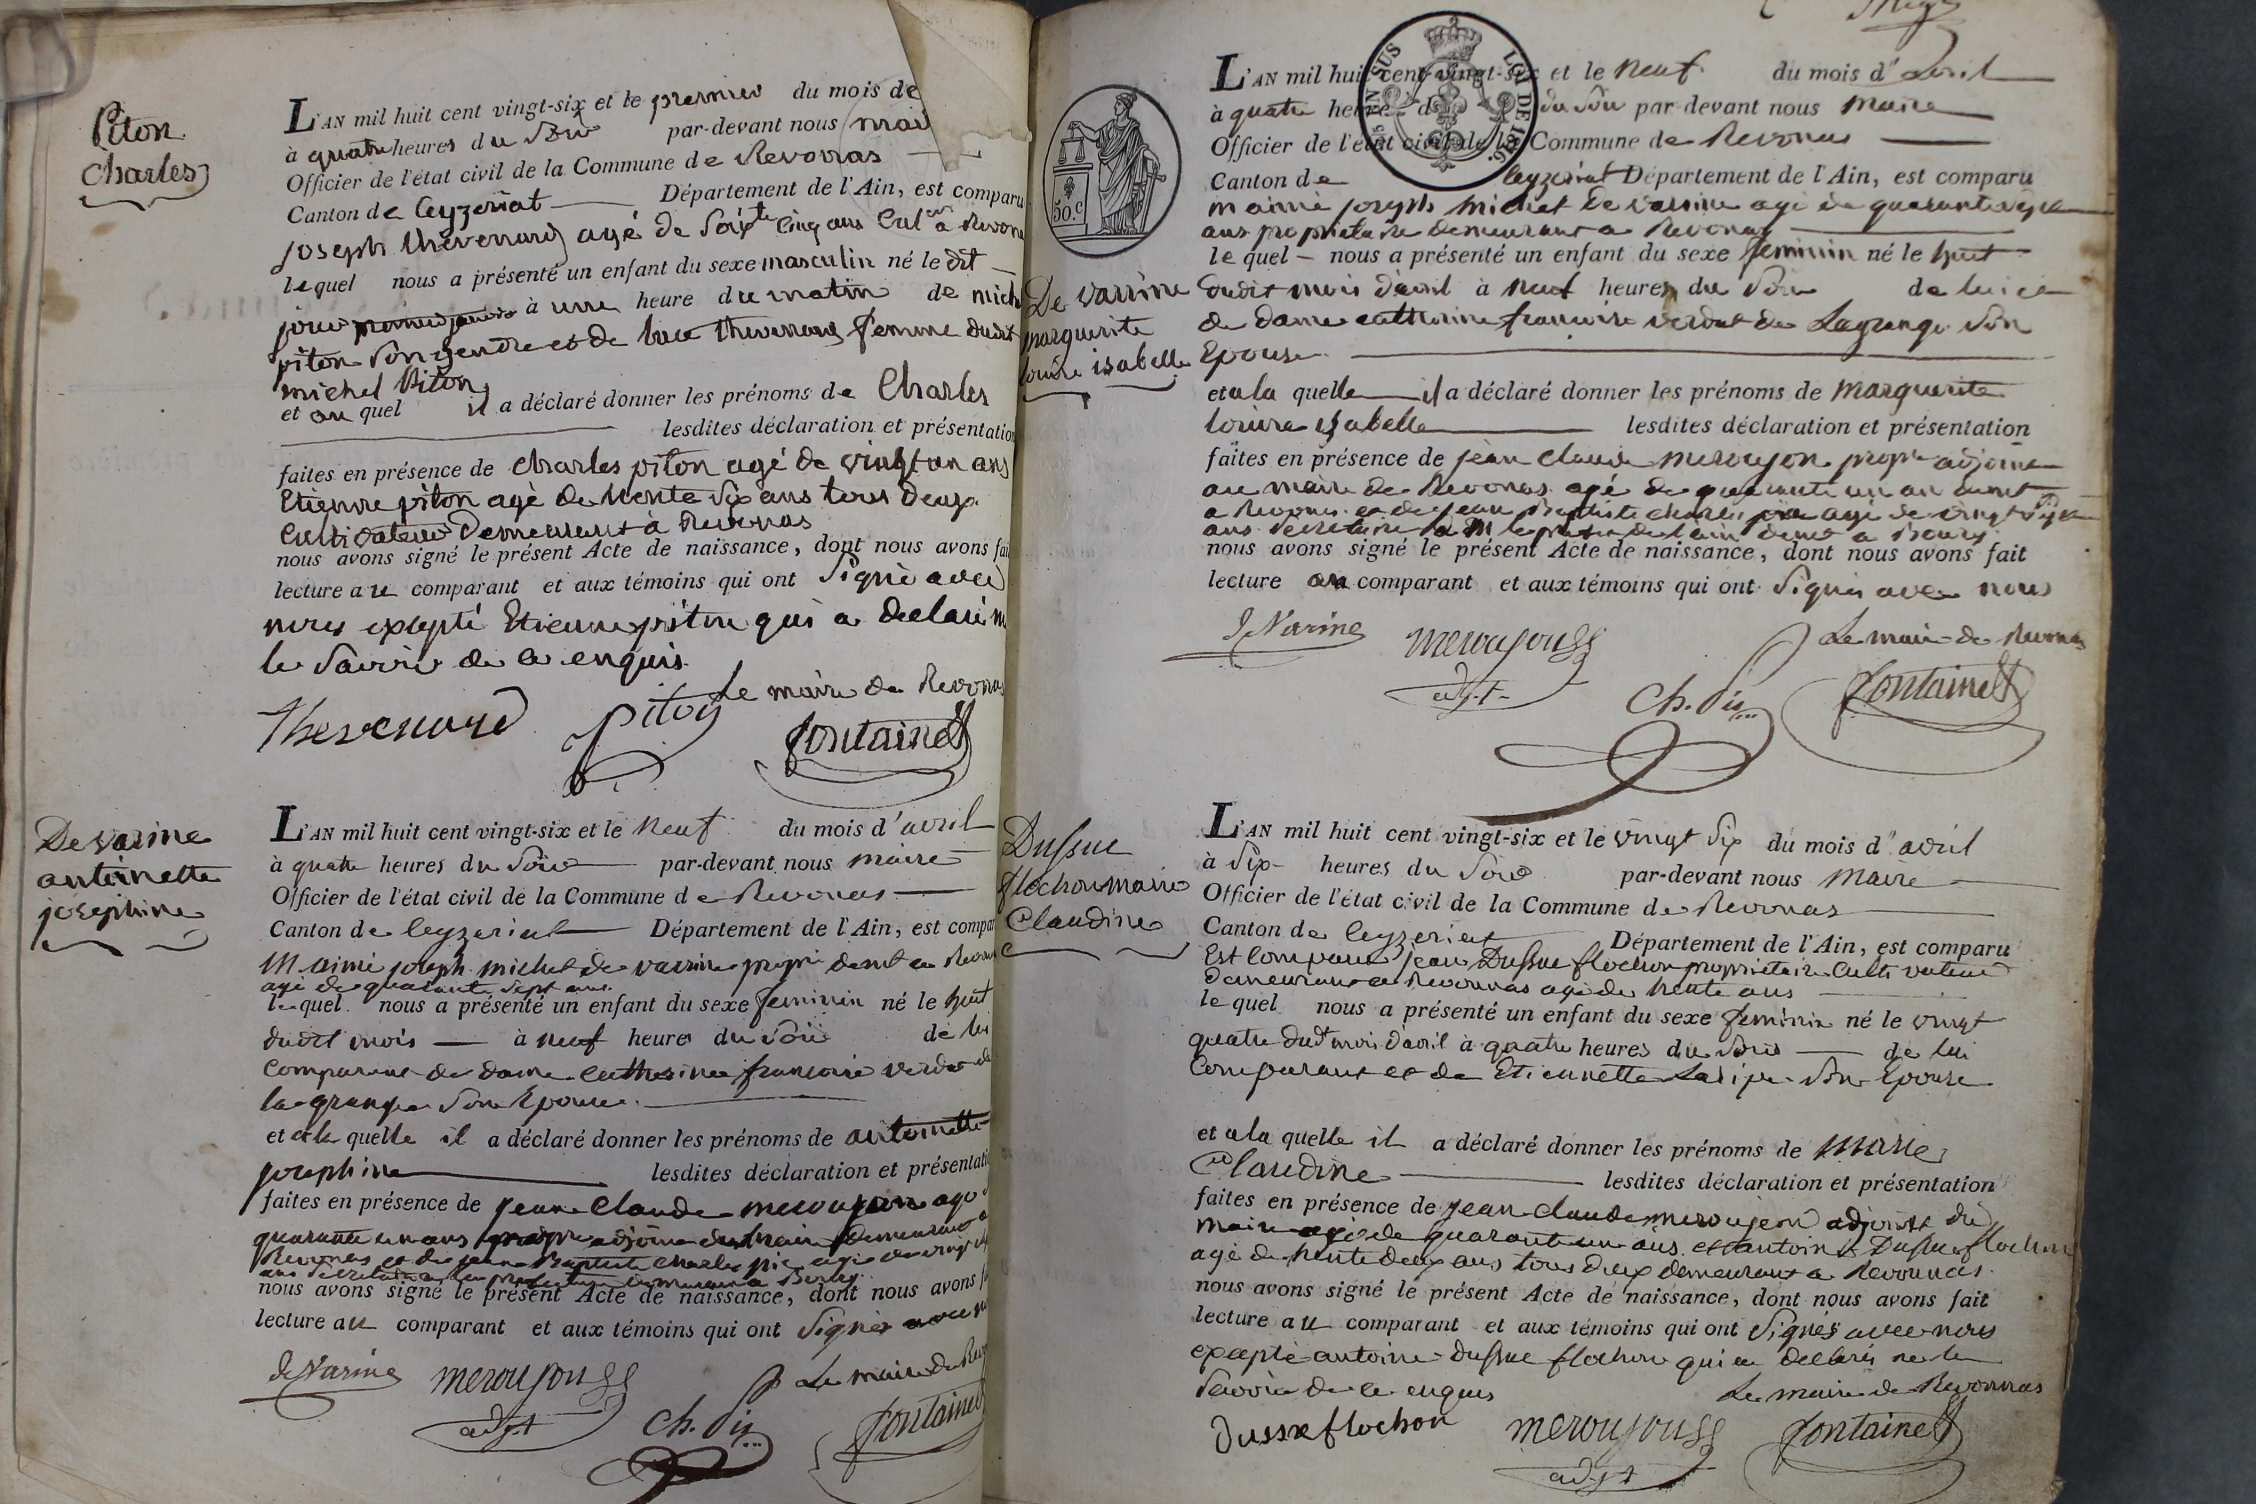 Piton
Charles
L'AN mil huit cent vingt-six et le premier du mois de
à quatre heures du Soir par-devant nous maire
Officier de l'état civil de la Commune de Revonas
Canton de Ceyzeriat Département de l'Ain, est comparu
joseph thevenard agé de Soixte Cinq ans Culeur a Revonas
lequel nous a présenté un enfant du sexe masculin né le dit
jour à une heure du matin de michel
piton Son gendre et de thevenard femme dudit
michel Piton
et au quel il a déclaré donner les prénoms de Charles
lesdites déclaration et présentation
faites en présence de charles piton agé de vingt un ans
Etienne piton agé de trente Six ans tous deux
Cultivateurs Demeurant à Revonas
nous avons signé le présent Acte de naissance, dont nous avons fait
lecture au comparant et aux témoins qui ont Signé avec
nous excepté Etienne piton qui a declaré ne
le Savoir de ce enquis
le maire de Revonas
thevenard piton fontaine
De varine
antoinette
josephine
L'AN mil huit cent vingt-six et le neuf du mois d'avril
à quatre heures du Soir par-devant nous maire
Officier de l'état civil de la Commune de Revonas
Canton de Ceyzeriat Département de l'Ain, est comparu
M. aimé joseph michel de varine propre demt a Revonas
agé de quarante Sept ans
lequel nous a présenté un enfant du sexe feminin né le huit
dudit mois à neuf heures du Soir de lui
Comparant de dame catherine françoise verdat de
la grange Son Epouse
et a la quelle il a déclaré donner les prénoms de antoinette
josephine lesdites déclaration et présentation
faites en présence de jean Claude meroujon agé de
quarante un ans propre adjoint du maire demeurant a
Revonas et de jean Baptiste charles pic agé de vingt
ans Secretaire a la prefecture demeurant a Bourg
nous avons signé le présent Acte de naissance, dont nous avons fait
lecture au comparant et aux témoins qui ont Signés avec nous
Le maire de Revonas
de Varine meroujon adjt Ch. Pic fontaine
LOI DE 1816.
EN SUS
50.c
De varine
marguerite
louise isabelle
L'AN mil huit cent vingt-six et le neuf du mois d'avril
à quatre heures du Soir par-devant nous maire
Officier de l'état civil de la Commune de Revonas
Canton de Ceyzeriat Département de l'Ain, est comparu
m aimé joseph michel De varine agé de quarante sept
ans proprietaire demeurant a Revonas
lequel nous a présenté un enfant du sexe feminin né le huit
dudit mois d'avril à neuf heures du Soir de lui et
de dame catherine françoise verdat de Lagrange Son
Epouse
et a la quelle il a déclaré donner les prénoms de marguerite
louise isabelle lesdites déclaration et présentation
faites en présence de jean claude meroujon propre adjoint
au maire de Revonas agé de quarante un an demt
a Revonas et de jean Baptiste charles pic agé de vingt
ans Secretaire a M le prefet de l'ain demt a Bourg
nous avons signé le présent Acte de naissance, dont nous avons fait
lecture au comparant et aux témoins qui ont Signés avec nous
Le maire de Revonas
de Varine meroujon adjt Ch. Pic fontaine
Dussue
flochon marie
Claudine
L'AN mil huit cent vingt-six et le vingt Six du mois d'avril
à Six heures du Soir par-devant nous maire
Officier de l'état civil de la Commune de Revonas
Canton de Ceyzeriat Département de l'Ain, est comparu
Est Comparu jean Dussue flochon proprietaire Cultivateur
demeurant a Revonnas agé de trente ans
lequel nous a présenté un enfant du sexe feminin né le vingt
quatre dudt mois d'avril à quatre heures du Soir de lui
Comparant et de Etiennette Son Epouse
et a la quelle il a déclaré donner les prénoms de marie
Claudine lesdites déclaration et présentation
faites en présence de jean claude meroujeon adjoint du
maire agé de quarante un ans et antoine Dussue flochon
agé de trente deux ans tous deux demeurant a Revonnas
nous avons signé le présent Acte de naissance, dont nous avons fait
lecture au comparant et aux témoins qui ont Signés avec nous
excepté antoine Dussue flochon qui a declaré ne le
Savoir de ce enquis Le maire de Revonnas
Dussue flochon meroujon adjt fontaine